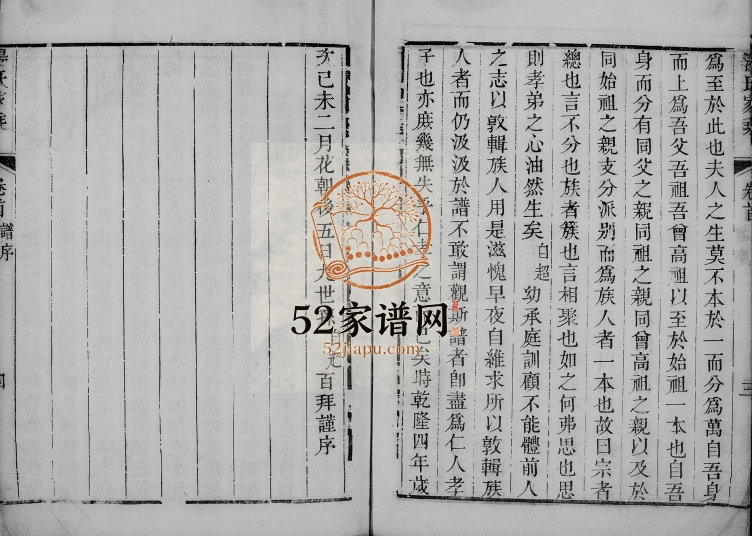 為至於此也夫人之生莫不本於一而分為萬自吾身
而上為吾父吾祖吾曾高祖以至於始祖一本也自吾
身而分有同父之親同祖之親同曾高祖之親以及於
同始祖之親支分派別而為族人者一本也故曰宗者
總也言不分也族者簇也言相聚也如之何弗思也思
則孝弟之心油然生矣 白超 幼承庭訓顧不能體前人
之志以敦輯族人用是滋愧早夜自維求所以敦輯族
人者而仍汲汲於譜不敢謂觀斯譜者卽盡為仁人孝
子也亦庶幾無失乎仁 之意 已矣時乾隆四年歲
次己未二月花朝後五日 世 百拜謹序
卷首 譜序
四
三
52家谱网
52jiapu.com